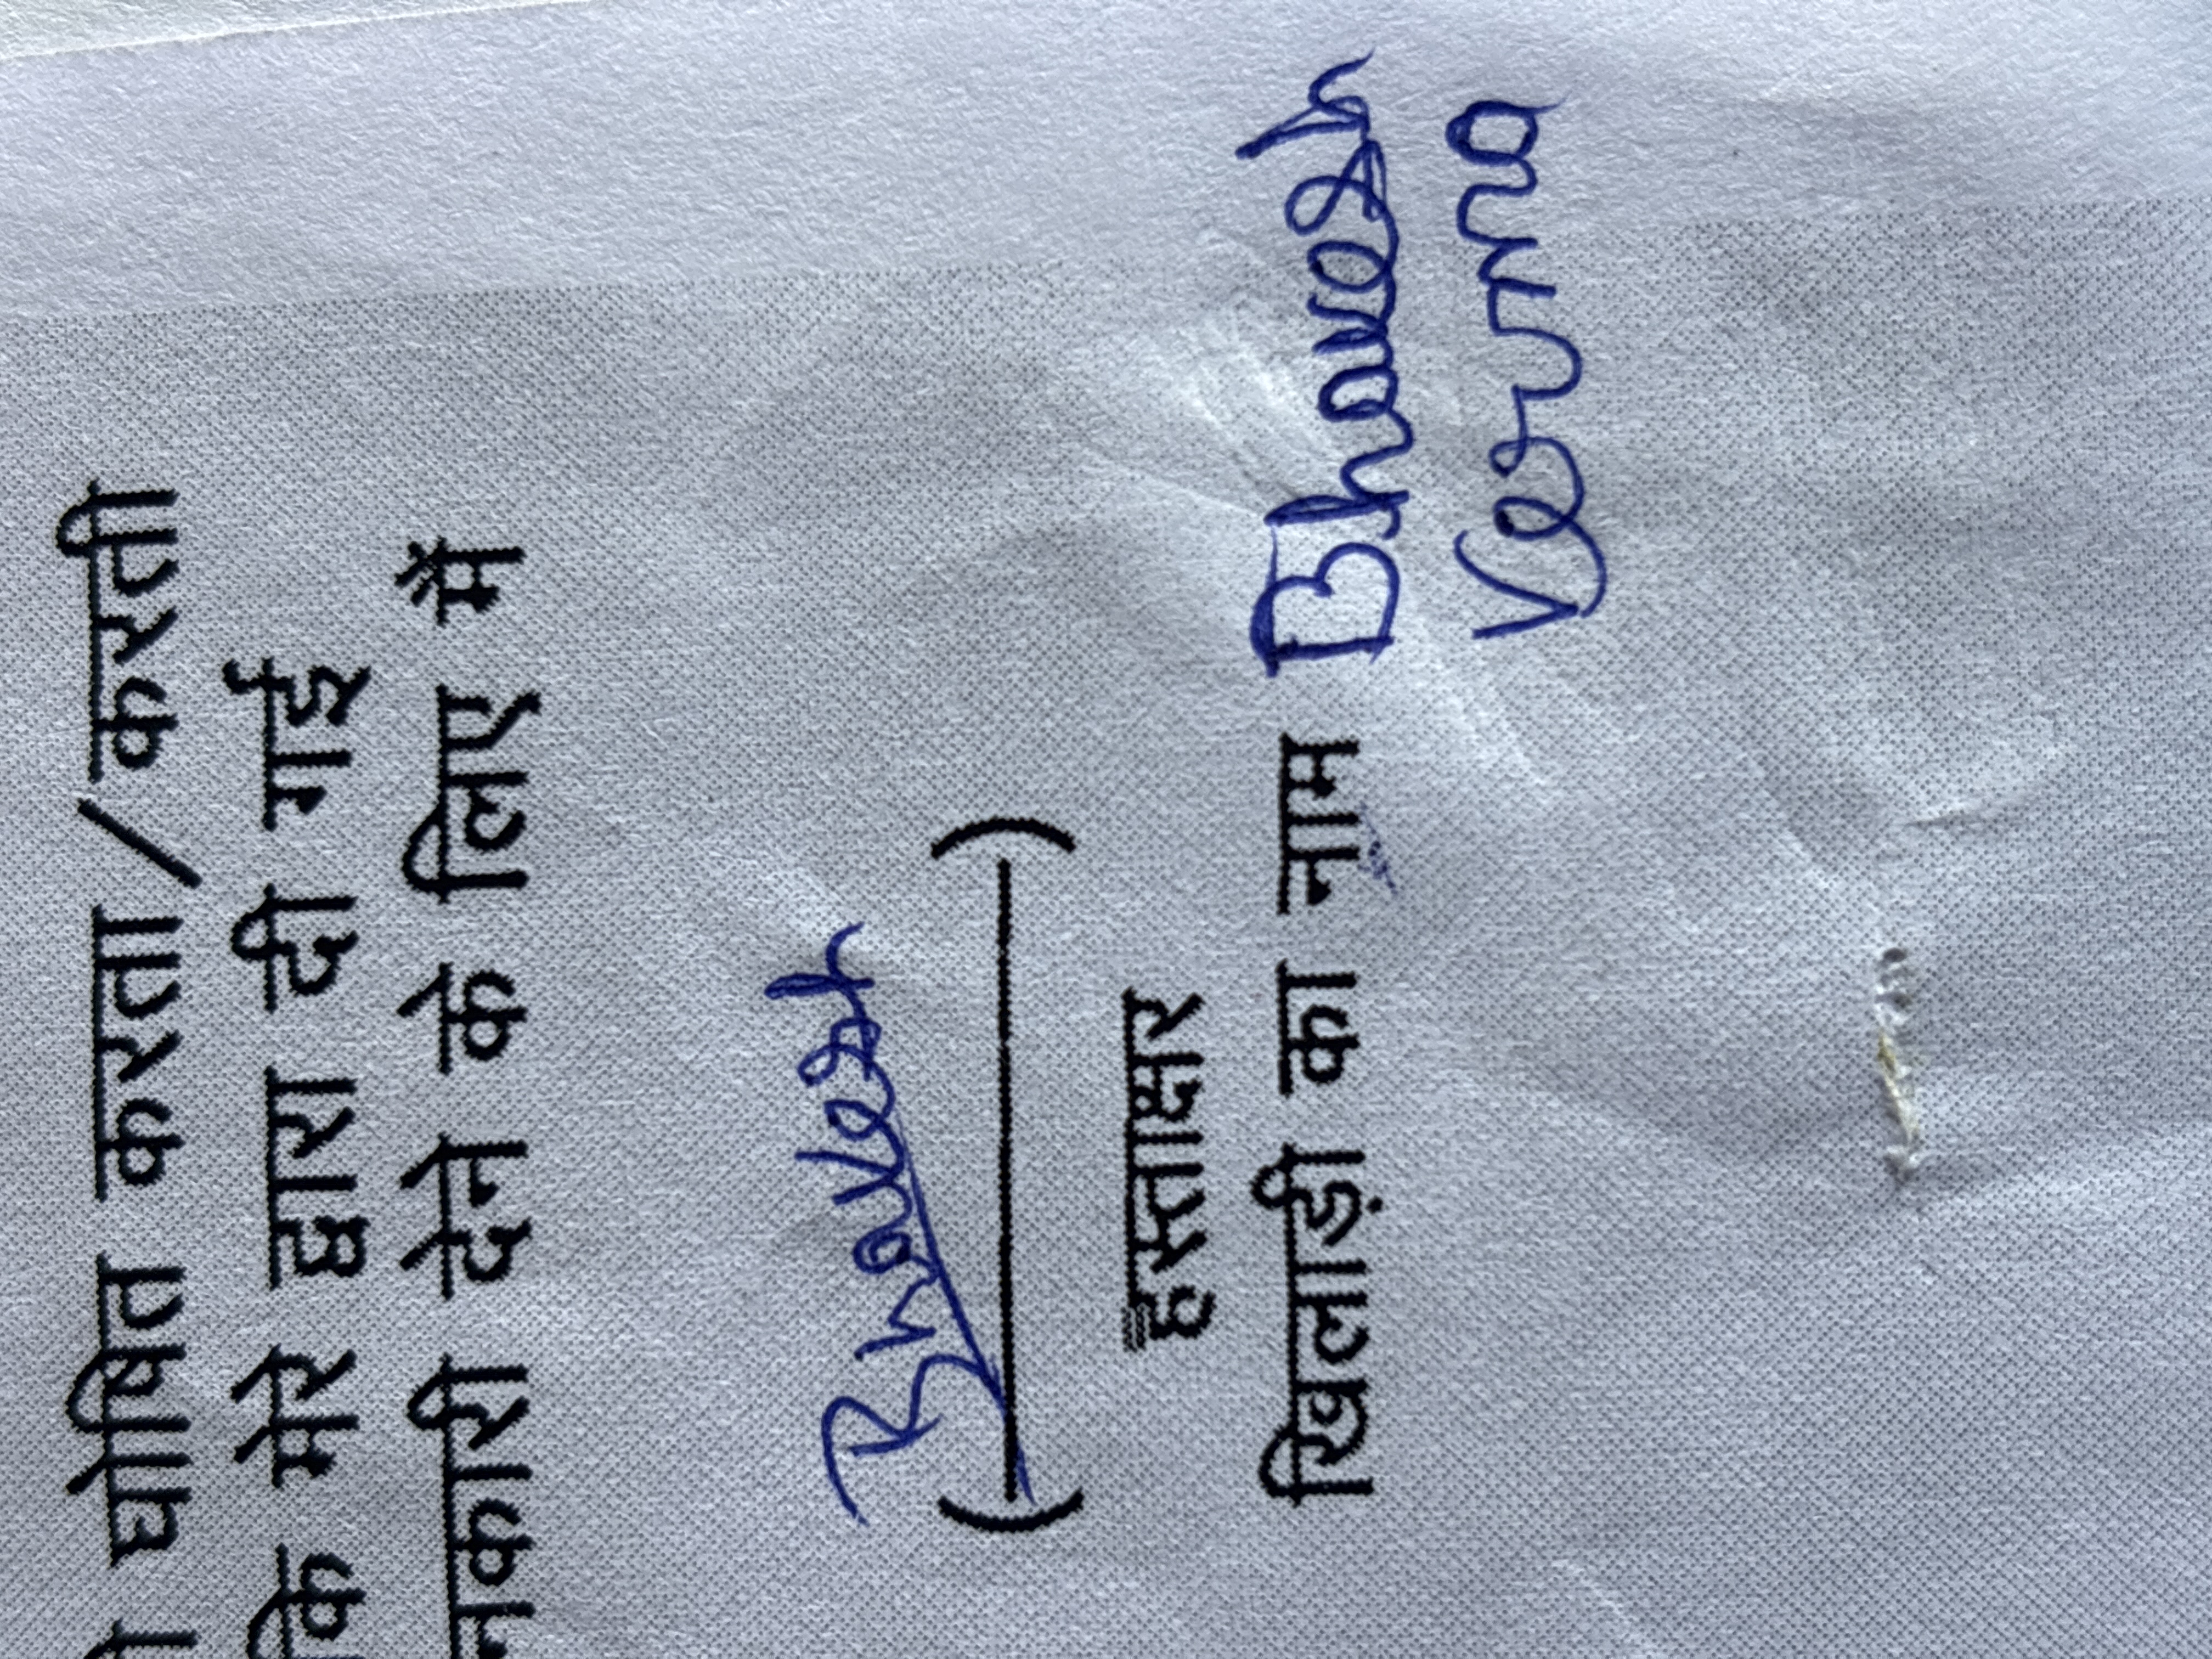 घोषित करता/करती
कि मेरे द्वारा दी गई
देने के लिए मैं
Bhavesh
(———)
हस्ताक्षर
खिलाड़ी का नाम Bhavesh
Verma